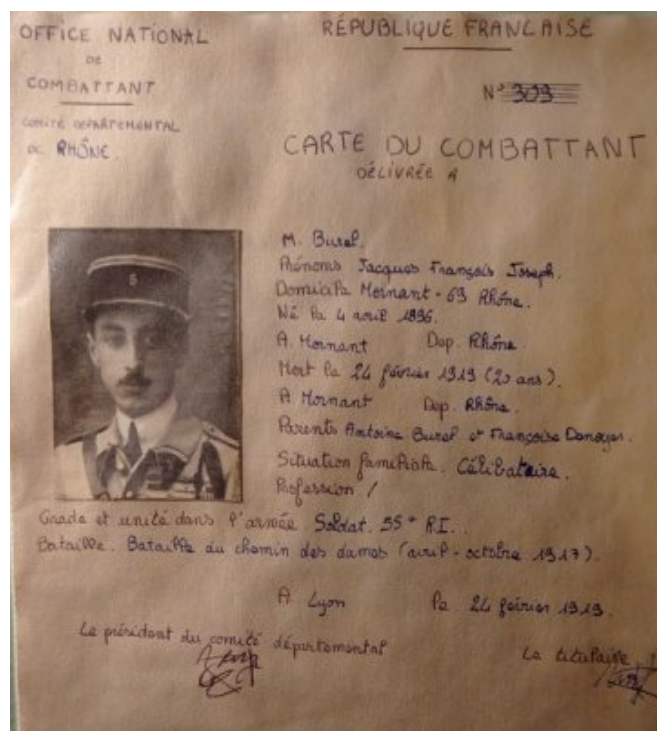 OFFICE NATIONAL
DE
COMBATTANT
COMITÉ DÉPARTEMENTAL
DE RHÔNE.
RÉPUBLIQUE FRANCAISE
N° 303
CARTE DU COMBATTANT
DÉLIVRÉE A
M. Burel.
Prénoms Jacques François Joseph.
Domicile Mornant - 69 Rhône.
Né le 4 avril 1896.
A. Mornant Dep. Rhône.
Mort le 24 février 1919 (20 ans).
A Mornant Dep. Rhône.
Parents Antoine Burel et Françoise
Situation familiale. Célibataire.
Profession /
Grade et unité dans l'armée. Soldat. 55e R.I.
Bataille. Bataille du chemin des dames (avril - octobre 1917).
A Lyon le 24 février 1919.
Le président du comité départemental
Le titulaire
5